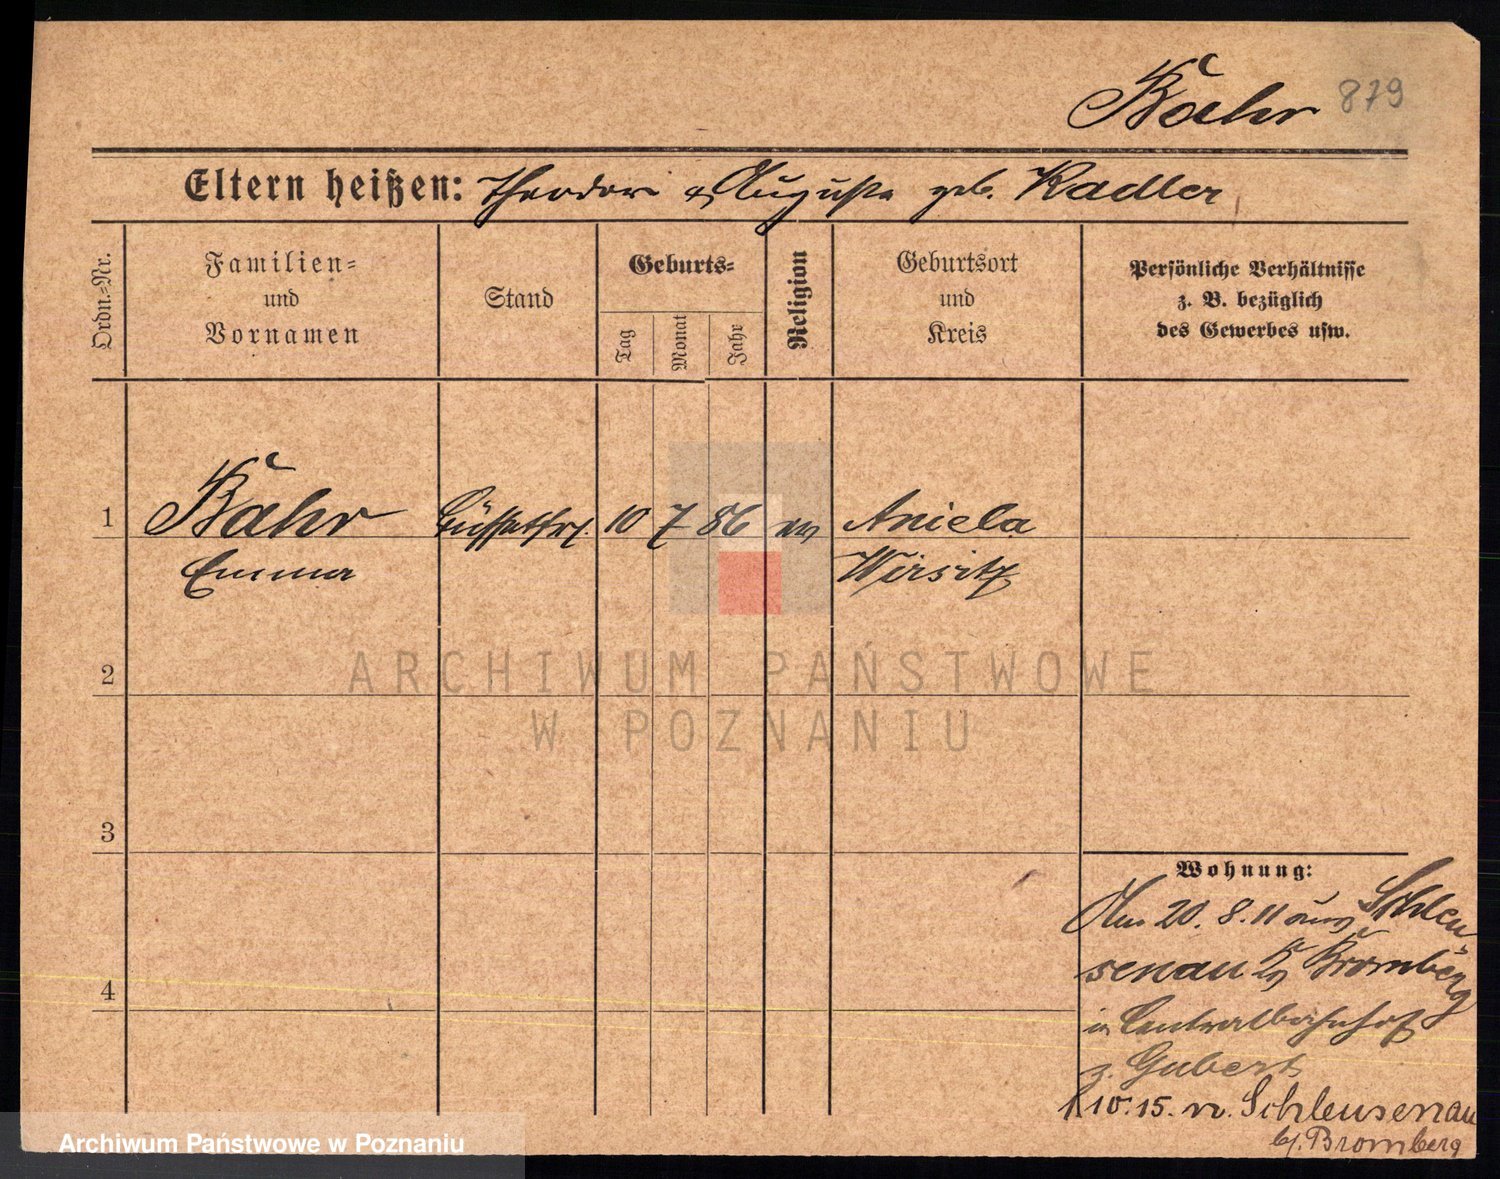 Bähr 879
Eltern heißen: Theodor u Auguste geb. Radler
Ordn.-Nr.
Familien-
und
Vornamen
Stand
Geburts-
Tag
Monat
Jahr
Religion
Geburtsort
und
Kreis
Persönliche Verhältnisse
z. B. bezüglich
des Gewerbes usw.
1 Bähr Büffettfrl. 10 7 86 ev Aniela
Emma Wirsitz
2
ARCHIWUM PAŃSTWOWE
W POZNANIU
3
Wohnung:
Am 20. 8. 11 aus Schleu
senau Kr Bromberg
in Centralbahnhof
z. Gubert
10. 15. n. Schleusenau
b/. Bromberg
4
Archiwum Państwowe w Poznaniu